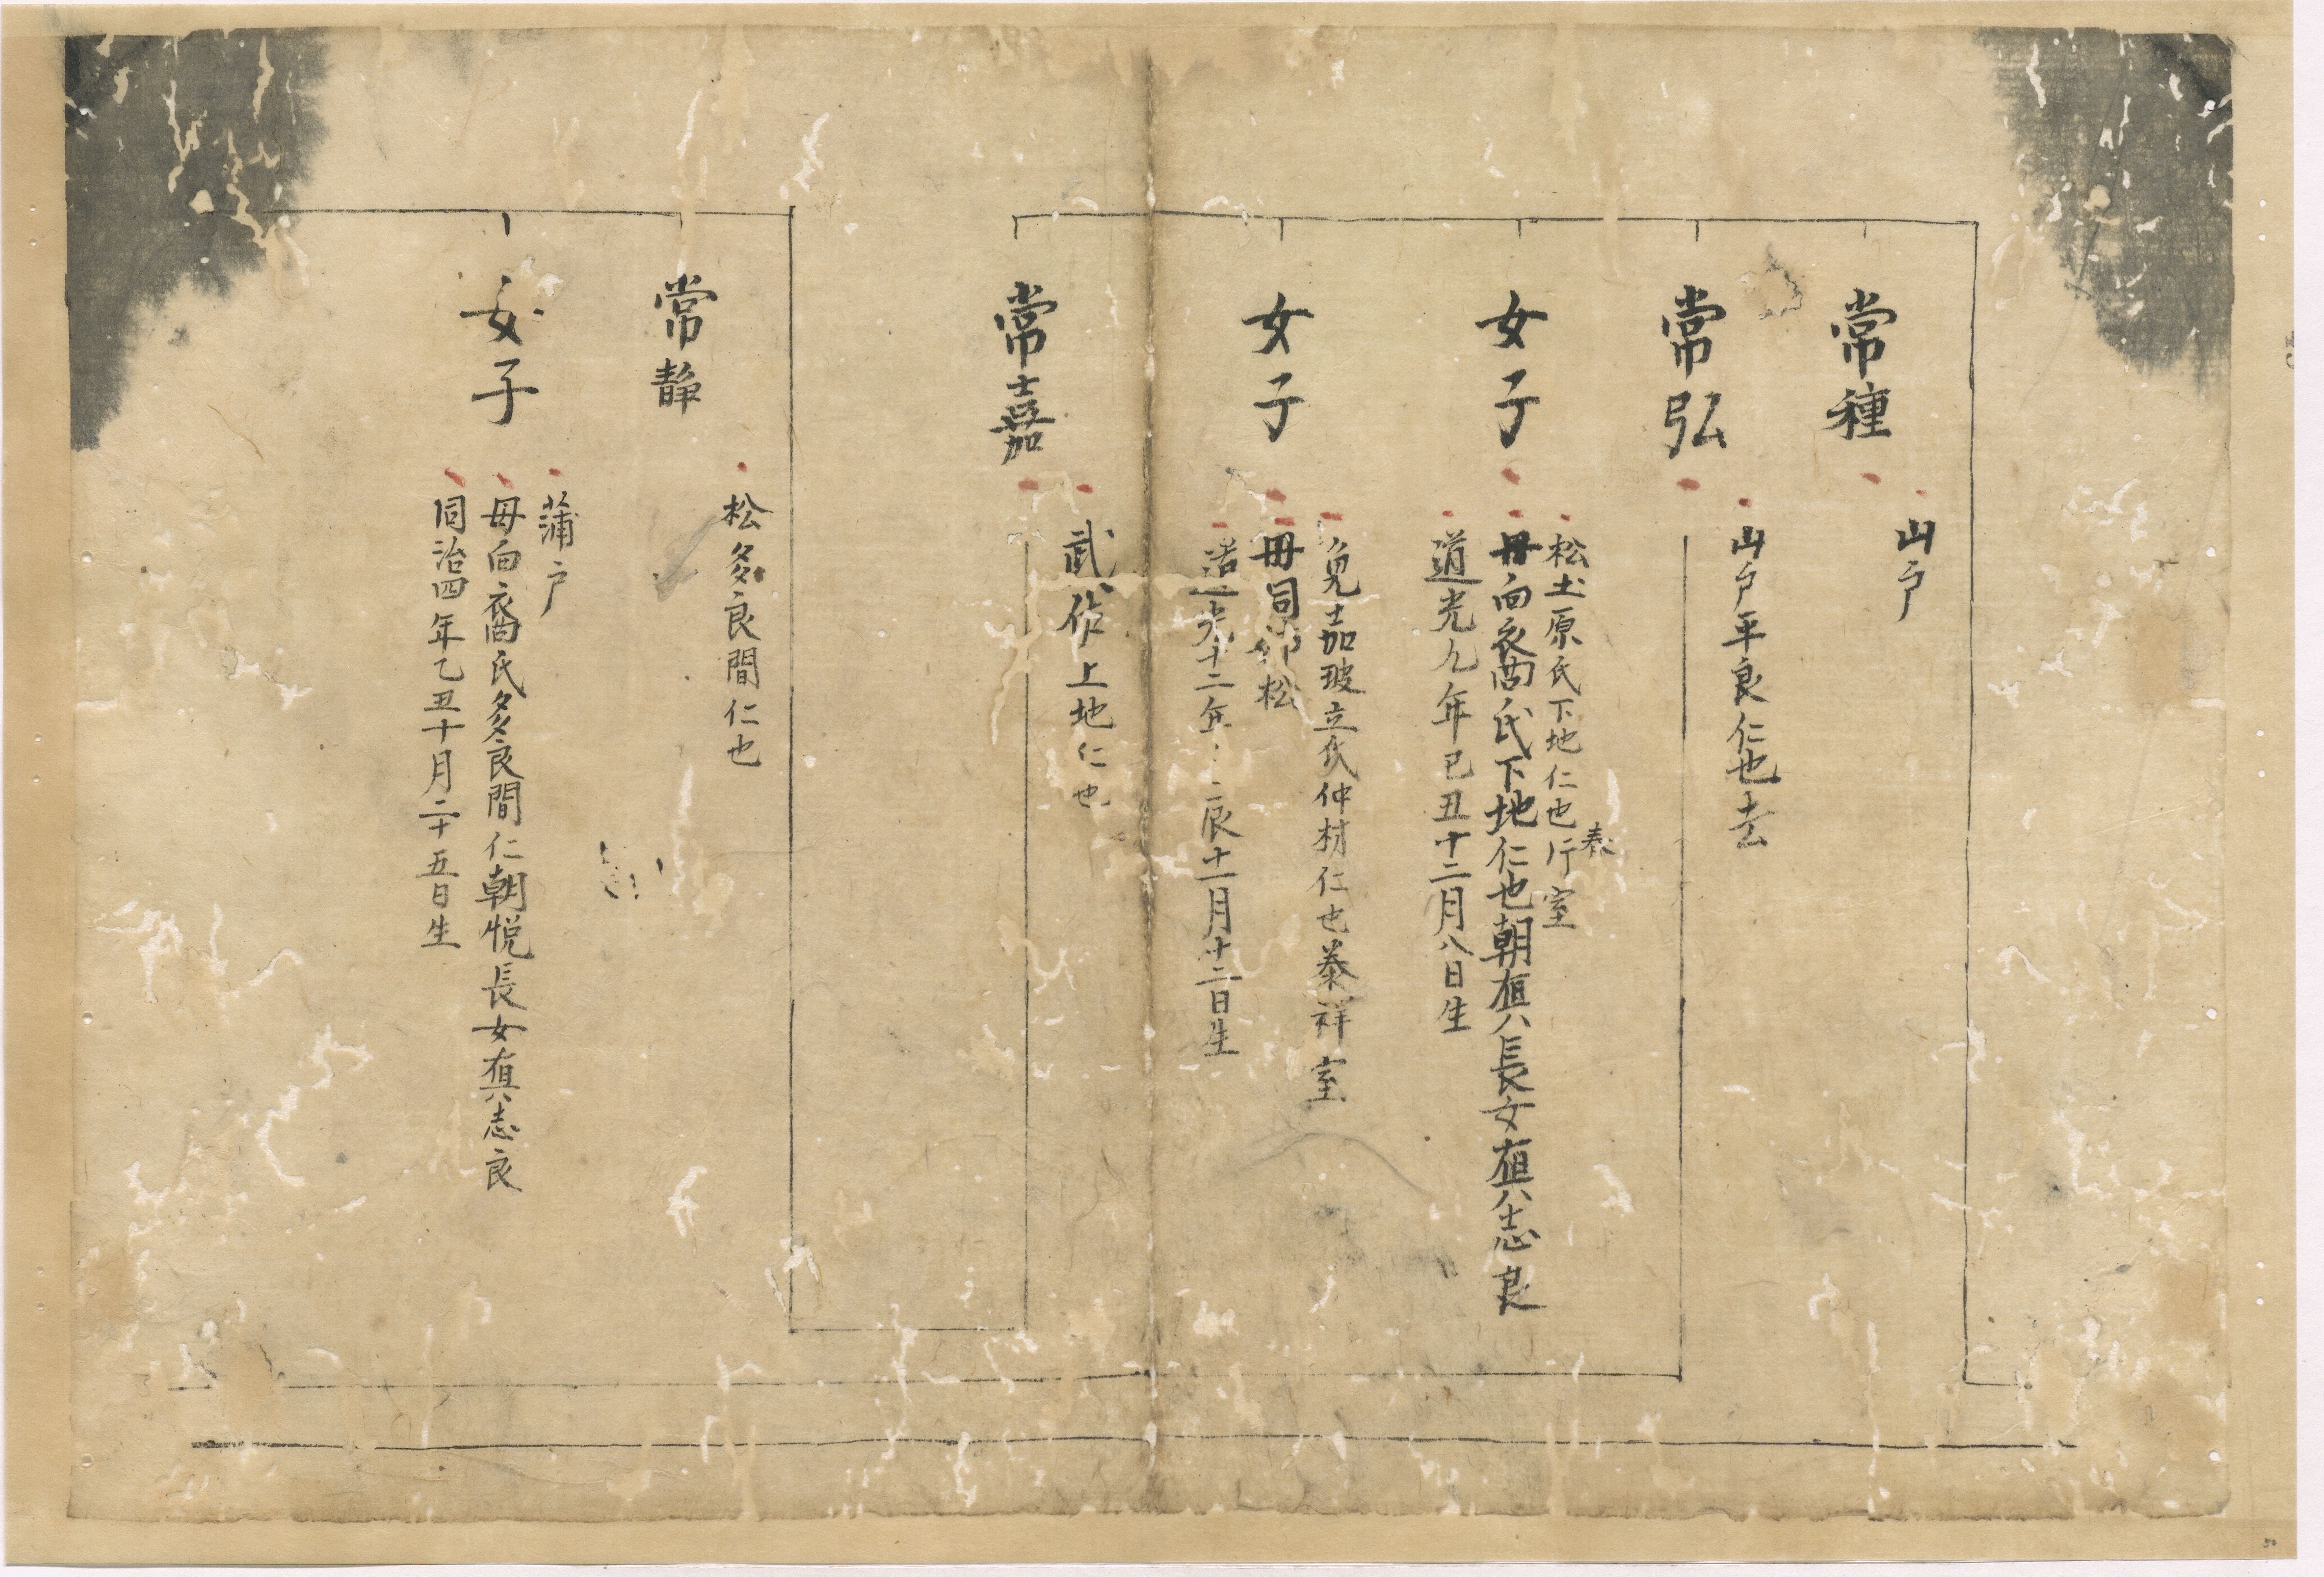 常種
山戸
常弘
山戸平良仁也去
女子
松土原氏下地仁也行室
泰
母向裔氏下地仁也朝楦長女楦志良
道光九年己丑十二月八日生
女子
兎嘉玻立氏仲材仁也泰祥室
母同松
道光十二年辰十一月十二日生
常嘉
武佐上地仁也
常静
松多良間仁也
女子
蒲戸
母向裔氏多良間仁朝悦長女真志良
同治四年乙丑十月二十五日生